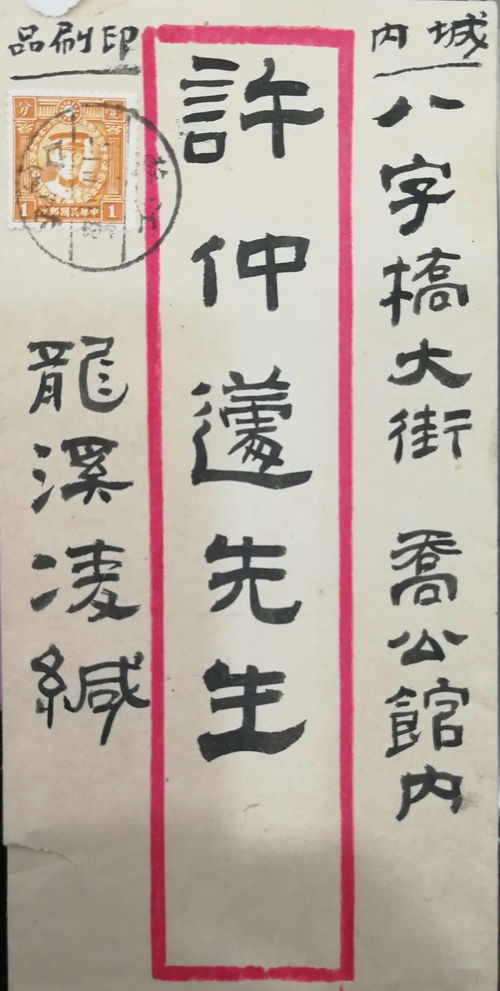 城内
八字橋大街 喬公館内
許仲蘧先生
印刷品
壹分
中華民國郵政
1 1
龍溪凌緘